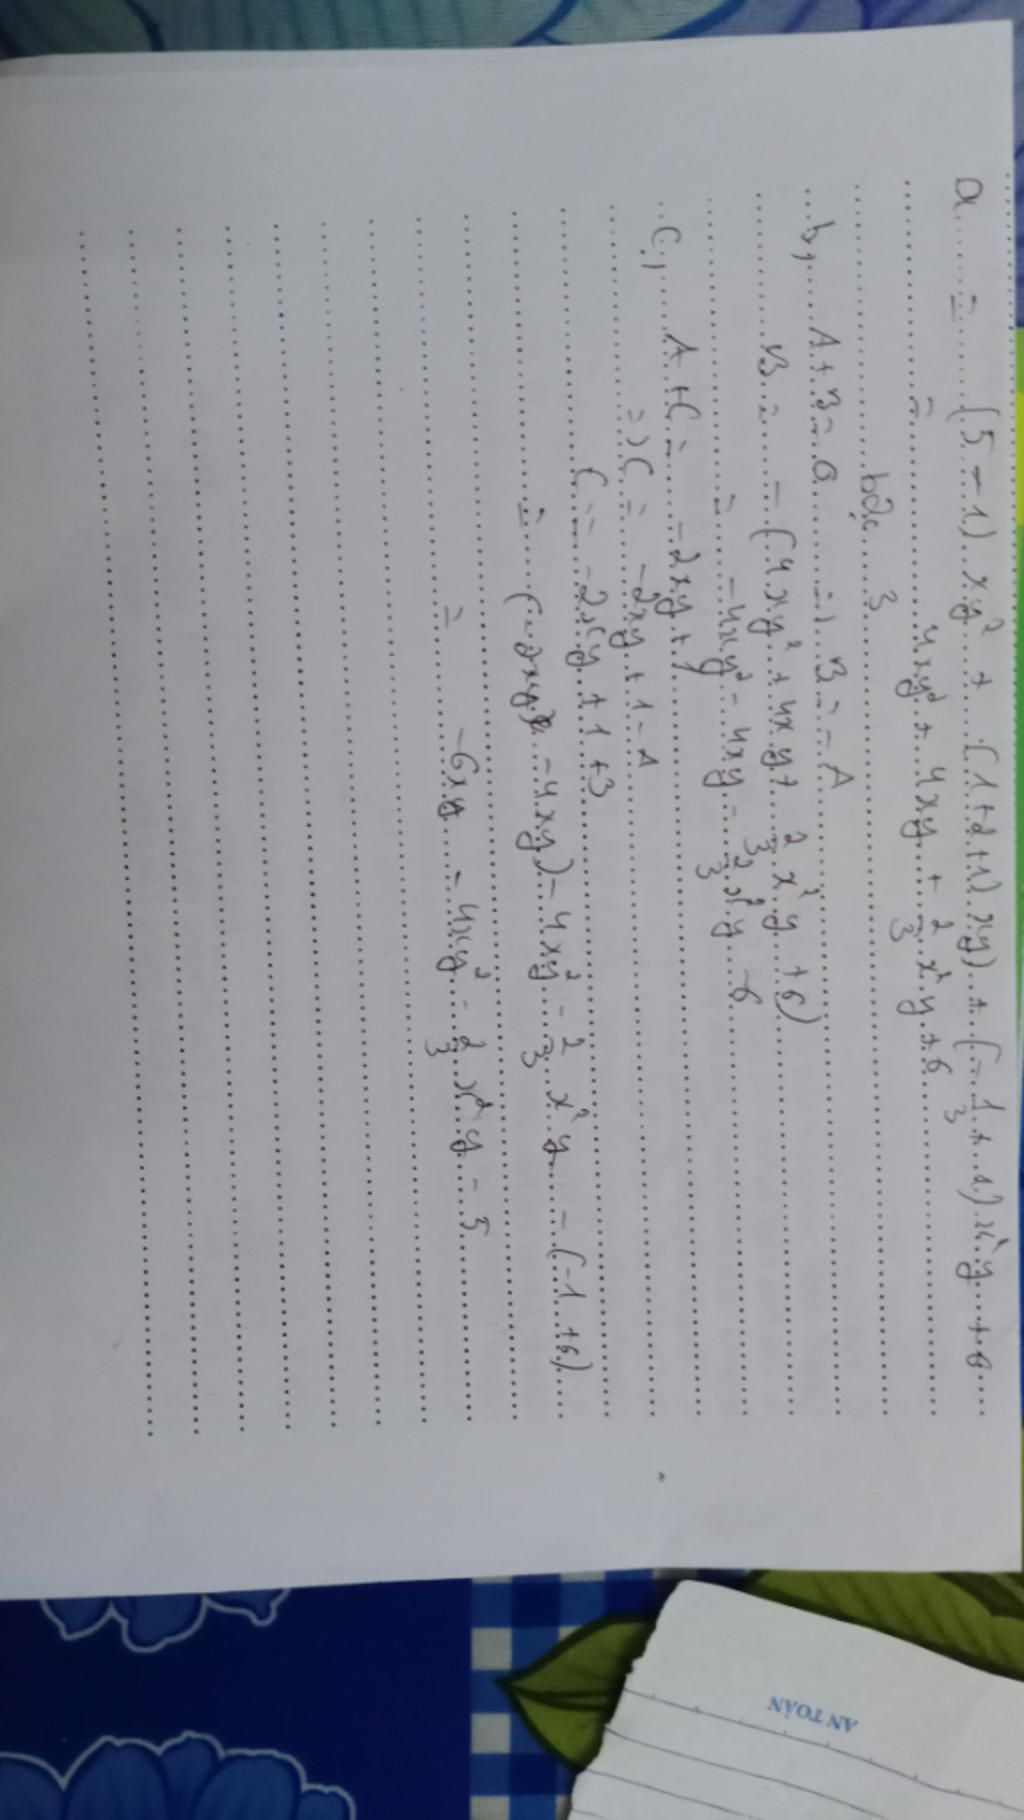 a = (5 - 1) xy² + (1+2+1) xy) + (- 1/3 + 1) x²y + 6
= 4xy² + 4xy + 2/3 x²y + 6
bậc 3
b, A + B = 0 => B = - A
B = - (4xy² + 4xy + 2/3 x²y + 6)
= - 4xy² - 4xy - 2/3 x²y - 6
c, A + C = - 2xy + 1
=> C = - 2xy + 1 - A
C = - 2xy + 1 + B
= (-2xy - 4xy) - 4xy² - 2/3 x²y - (-1 + 6)
= - 6xy - 4xy² - 2/3 x²y - 5
AN TOÀN